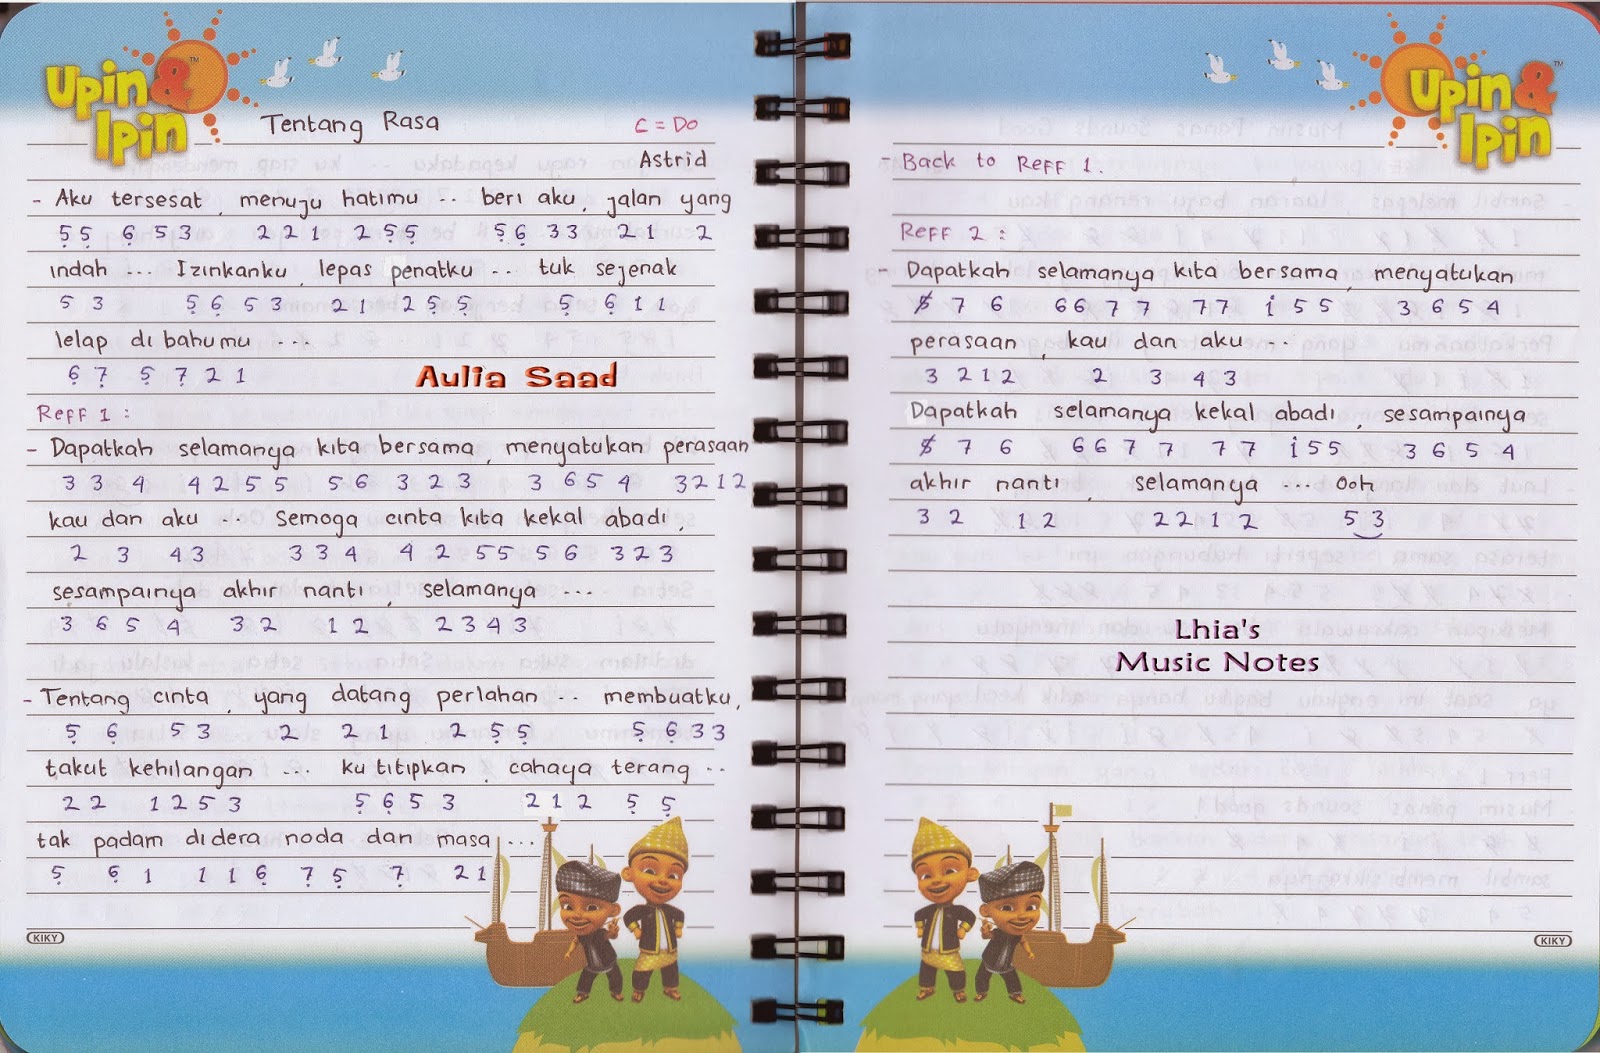 Upin & Ipin™
Tentang Rasa
C = Do
Astrid
- Aku tersesat, menuju hatimu .. beri aku, jalan yang
5̣ 5̣ 6̣ 5 3 2 2 1 2 5̣ 5̣ 5̣ 6̣ 3 3 2 1 2
indah ... Izinkanku, lepas penatku .. tuk sejenak
5 3 5̣ 6̣ 5 3 2 1 2 5̣ 5̣ 5̣ 6̣ 1 1
lelap di bahumu ...
6̣ 7̣ 5̣ 7̣ 2 1
Aulia Saad
Reff 1 :
- Dapatkah selamanya kita bersama, menyatukan perasaan
3 3 4 4 2 5 5 5 6 3 2 3 3 6 5 4 3 2 1 2
kau dan aku ... Semoga cinta kita kekal abadi,
2 3 4 3 3 3 4 4 2 5 5 5 6 3 2 3
sesampainya akhir nanti, selamanya ...
3 6 5 4 3 2 1 2 2 3 4 3
- Tentang cinta, yang datang perlahan ... membuatku,
5̣ 6̣ 5 3 2 2 1 2 5̣ 5̣ 5̣ 6̣ 3 3
takut kehilangan ... ku titipkan, cahaya terang ..
2 2 1 2 5 3 5̣ 6̣ 5 3 2 1 2 5̣ 5̣
tak padam di dera noda dan masa ...
5̣ 6̣ 1 1 1 6̣ 7̣ 5̣ 7̣ 2 1
KIKY
Upin & Ipin™
- Back to Reff 1.
Reff 2 :
- Dapatkah selamanya kita bersama, menyatukan
5̸ 7 6 6 6 7 7 7 7 i 5 5 3 6 5 4
perasaan, kau dan aku ...
3 2 1 2 2 3 4 3
Dapatkah selamanya kekal abadi, sesampainya
5̸ 7 6 6 6 7 7 7 7 i 5 5 3 6 5 4
akhir nanti, selamanya ... Ooh
3 2 1 2 2 2 1 2 5 3
Lhia's
Music Notes
KIKY